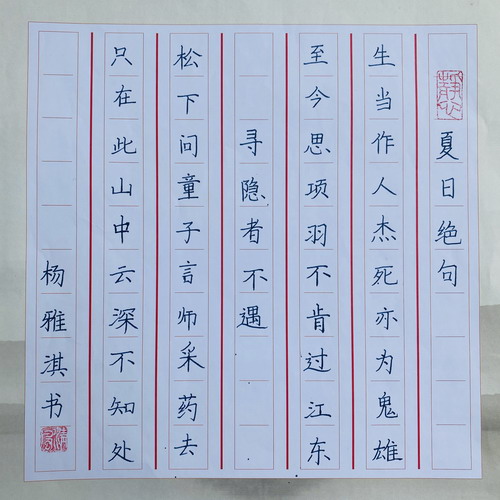 夏日绝句
生当作人杰死亦为鬼雄
至今思项羽不肯过江东
寻隐者不遇
松下问童子言师采药去
只在此山中云深不知处
杨雅淇书